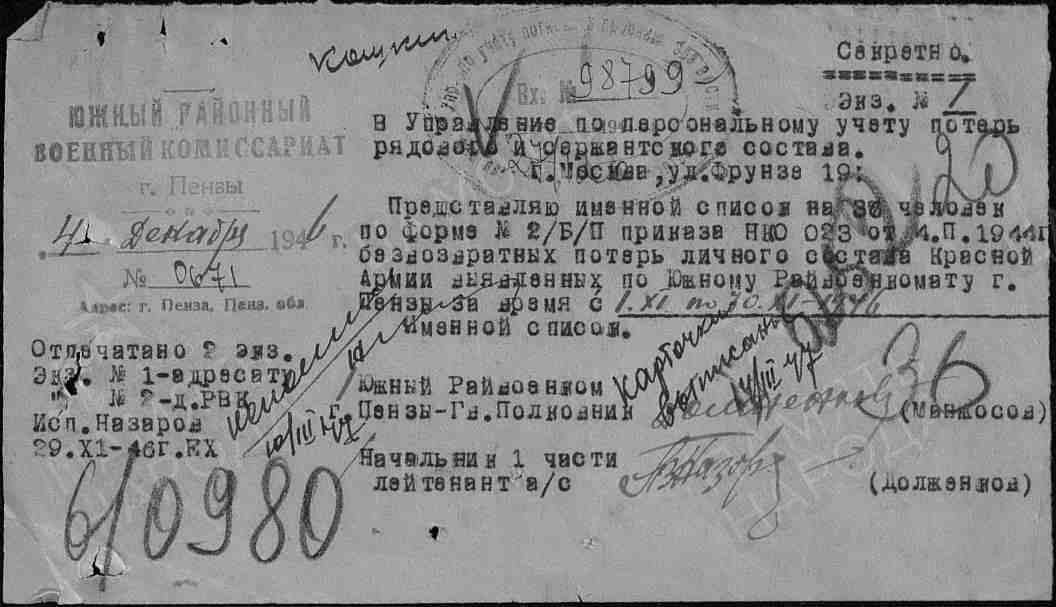 Секретно.
Экз. № 1
Вх. № 98799
ЮЖНЫЙ РАЙОННЫЙ
ВОЕННЫЙ КОМИССАРИАТ
г. Пензы
4 Декабря 1946 г.
№ 0671
Адрес: г. Пенза, Пенз. обл.
В Управление по персональному учету потерь
рядового и сержантского состава.
г.Москва, ул.Фрунзе 19.
Представляю именной список на человек
по форме № 2/Б/П приказа НКО 023 от 4.П.1944г
безвозвратных потерь личного состава Красной
Армии выявленных по Южному Райвоенкомату г.
Пензы за время с 1.XI по 30.XI-1946
Именной список.
Отпечатано 2 экз.
Экз. № 1-адресату
" № 2-д.РВК
Исп.Назаров
29.X1-46г.ЕХ
Южный Райвоенком
г. Пензы-Гв.Полковник (Манжосов)
Начальник 1 части
лейтенант а/с (Долженков)
Карточки
выписаны
14/III 47
10/III 47
36
6/0980